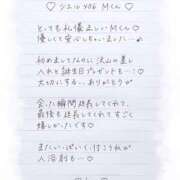 ♡ シエル 406 Mくん ♡
とっても礼儀正しいMくん
優しくて安心しちゃいました…
初めましてなのに沢山の差し
入れと誕生日プレゼントも…♡
大切にするね。ありがとう
会った瞬間延長してくれて、
最後も延長してくれてすごく
嬉しかったです♡
またいっぱいくっ付こうねが
入浴剤も…♡